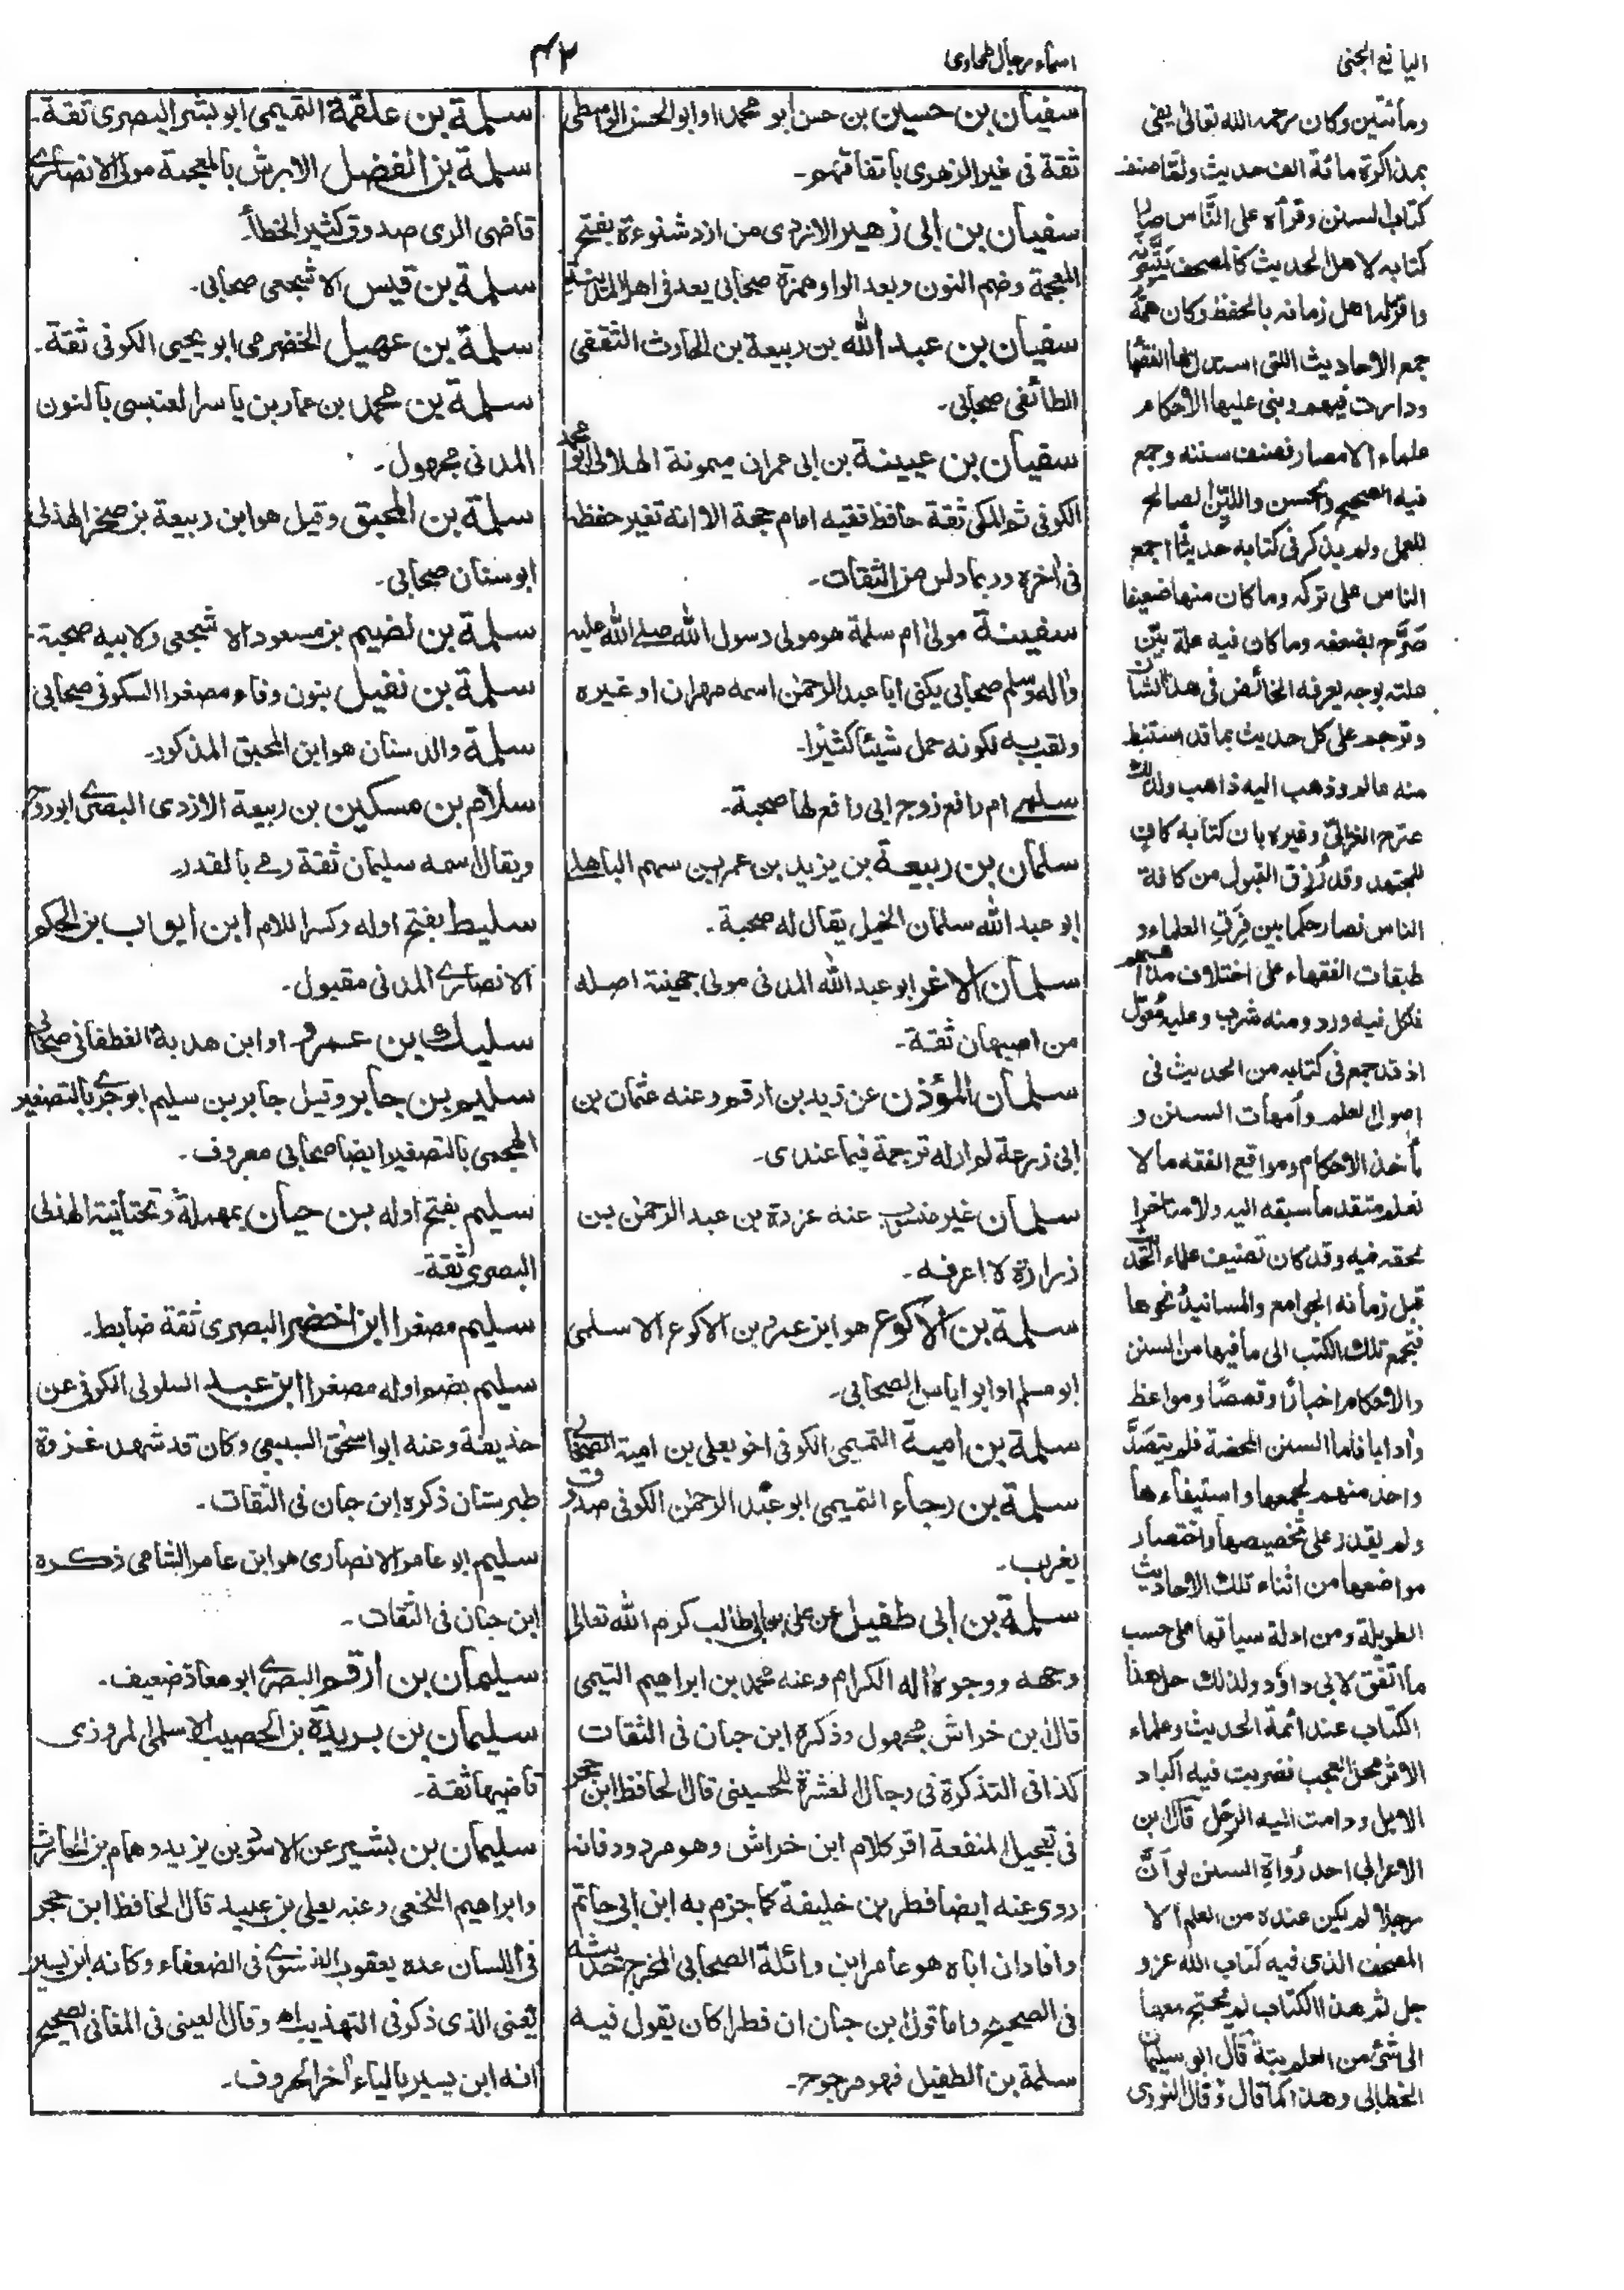 اليانع الجنى
اسماء رجال طحاوى
٤٣
ومأتين وكان رحمه الله تعالى يفى
بمذاكرة مائة الف حديث ولمّا صنف
كتاب السنن وقرأه على النّاس صار
كتابه لاهل الحديث كالمصحف يتّبعونه
واقرّله اهل زمانه بالحفظ وكان همّه
جمع الاحاديث التى استدل بها الفقها
ودارت فيهم وبنى عليها الاحكام
علماء الامصار فصنف سننه وجمع
فيه الصحيح والحسن واللّين الصالح
للعمل ولم يذكر فى كتابه حديثًا اجمع
الناس على تركه وما كان منها ضعيفا
صرّح بضعفه وما كان فيه علة بيّن
علته بوجه يعرفه الخائض فى هذا الشان
وترجم على كل حديث بما قد استنبط
منه عالم وذهب اليه ذاهب ولذلك
صرّح الغزالىّ وغيره بان كتابه كافٍ
للمجتهد وقد رُزق القبول من كافة
الناس فصار حكما بين فِرَقِ العلماء و
طبقات الفقهاء على اختلاف مذاهبهم
فلكل فيه ورد ومنه شرب وعليه مُعوّل
اذ قد جمع فى كتابه من الحديث فى
اصول العلم وأمهات السنن و
مأخذ الاحكام ومواقع الفقه ما لا
نعلم متقدما سبقه اليه ولا متاخرا
لحقه فيه وقد كان تصنيف علماء الحديث
قبل زمانه الجوامع والمسانيد ونحوها
فتجمع تلك الكتب الى ما فيها من السنن
والاحكام اخبارًا وقصصًا ومواعظ
وأدابا فاما السنن المحضة فلم يتصَدَّ
واحد منهم لجمعها واستيفاءها
ولم يقدر على تخصيصها واختصار
مواضعها من اثناء تلك الاحاديث
الطويلة ومن ادلة سياقها على حسب
ما اتفق لابى داؤد ولذلك حل هذا
الكتاب عند ائمة الحديث وعلماء
الاثر محل العجب فضربت فيه اكباد
الابل ودامت اليه الرحل قال ابن
الاعرابى احد رُواة السنن لو أنَّ
رجلا لم يكن عنده من العلم الا
المصحف الذى فيه كتاب الله عز و
جل ثم هذا الكتاب لم يحتج معهما
الى شئ من العلم بتة قال ابو سليمان
الخطابى وهذا كما قال وقال النووى
سفيان بن حسين بن حسن ابو محمد او ابو الحسن الواسطى
ثقة فى غير الزهرى باتفاقهم۔
سفيان بن ابى زهير الازدى من ازد شنوءة بفتح
المعجمة وضم النون وبعد الواو همزة صحابى يعد فى اهل المدينة
سفيان بن عبد الله بن ربيعة بن الحارث الثقفى
الطائفى صحابى۔
سفيان بن عيينة بن ابى عمران ميمونة الهلالى ابو محمد
الكوفى ثم المكى ثقة حافظ فقيه امام حجة الا انه تغير حفظه
فى اخره وربما دلس من الثقات۔
سفينة مولى ام سلمة هو مولى رسول الله صلى الله عليه
واله وسلم صحابى يكنى ابا عبد الرحمٰن اسمه مهران او غيره
ولقب به لكونه حمل شيئا كثيرا۔
سلمى ام رافع زوج ابى رافع لها صحبة۔
سلمان بن ربيعة بن يزيد بن عمر بن سهم الباهلى
ابو عبد الله سلمان الخيل يقال له صحبة۔
سلمان الاغر ابو عبد الله المدنى مولى جهينة اصله
من اصبهان ثقة۔
سلمان المؤذن عن زيد بن ارقم وعنه عثمان بن
ابى زرعة لم ار له ترجمة فيما عندى۔
سلمان غير منسوب عنه عزرة بن عبد الرحمٰن بن
زرارة لا اعرفه۔
سلمة بن الاكوع هو ابن عمرو بن الاكوع الاسلمى
ابو مسلم او ابو اياس الصحابى۔
سلمة بن امية التميمى الكوفى اخو يعلى بن امية الصحابى
سلمة بن رجاء التميمى ابو عبد الرحمٰن الكوفى صدوق
يغرب۔
سلمة بن ابى طفيل عن على بن ابى طالب كرم الله تعالى
وجهه ووجوه اله الكرام وعنه محمد بن ابراهيم التيمى
قال ابن خراش مجهول وذكره ابن حبان فى الثقات
كذا فى التذكرة فى رجال العشرة للحسينى قال الحافظ ابن حجر
فى تعجيل المنفعة اقر كلام ابن خراش وهو مردود فانه
روى عنه ايضا فطر بن خليفة كما جزم به ابن ابى حاتم
وافاد ان اباه هو عامر ابن واثلة الصحابى المخرج حديثه
فى الصحيح واما قول ابن حبان ان فطرا كان يقول فيه
سلمة بن الطفيل فهو مرجوح۔
سلمة بن علقمة التميمى ابو بشر البصرى ثقة۔
سلمة بن الفضل الابرش بالمعجمة مولى الانصارى
قاضى الرى صدوق كثير الخطأ۔
سلمة بن قيس الاشجعى صحابى۔
سلمة بن عهيل الخضرمى ابو يحيى الكوفى ثقة۔
سلمة بن محمد بن عمار بن ياسر العنسى بالنون
المدنى مجهول۔
سلمة بن المحبق وقيل هو ابن ربيعة بن صخر الهذلى
ابو سنان صحابى۔
سلمة بن نضيم بن مسعود الاشجعى ولابيه صحبة۔
سلمة بن نفيل بنون وفاء مصغرا السكونى صحابى
سلمة والد سنان هو ابن المحبق المذكور۔
سلام بن مسكين بن ربيعة الازدى البصرى ابو روح
ويقال اسمه سليمان ثقة رمى بالقدر۔
سليط بفتح اوله وكسر اللام ابن ايواب بن الحكم
الانصارى المدنى مقبول۔
سليك بن عمرو او ابن هدبة الغطفانى صحابى
سليم بن جابر وقيل جابر بن سليم ابو جرى بالتصغير
الهجيمى بالتصغير ايضا صحابى معروف۔
سليم بفتح اوله بن حيان بمهملة وتحتانية الهذلى
البصرى ثقة۔
سليم مصغرا ابن اخضر البصرى ثقة ضابط۔
سليم بضم اوله مصغرا ابن عبد السلولى الكوفى عن
حذيفة وعنه ابو اسحٰق السبيعى وكان قد شهد غزوة
طبرستان ذكره ابن حبان فى الثقات۔
سليم ابو عامر الانصارى هو ابن عامر الشامى ذكره
ابن حبان فى الثقات۔
سليمان بن ارقم البصرى ابو معاذ ضعيف۔
سليمان بن بريدة بن الحصيب الاسلمى المروزى
قاضيها ثقة۔
سليمان بن بشير عن الاسود بن يزيد وهمام بن الحارث
وابراهيم النخعى وعنه يعلى بن عبيد قال الحافظ ابن حجر
فى اللسان عده يعقوب الفسوى فى الضعفاء وكانه ابن يسير
يعنى الذى ذكر فى التهذيب اه وقال العينى فى المغانى الصحيح
انه ابن يسير بالياء اخر الحروف۔